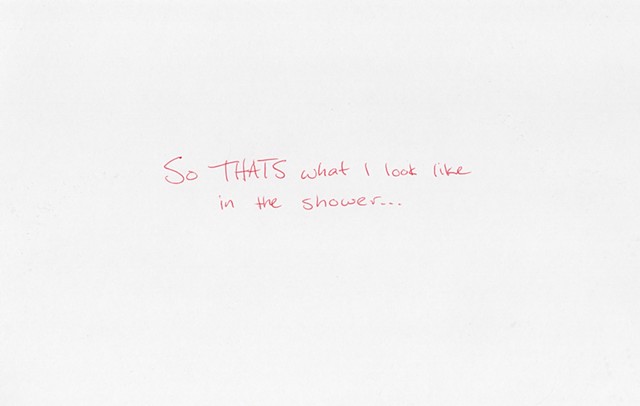 So THATS what I look like
in the shower...